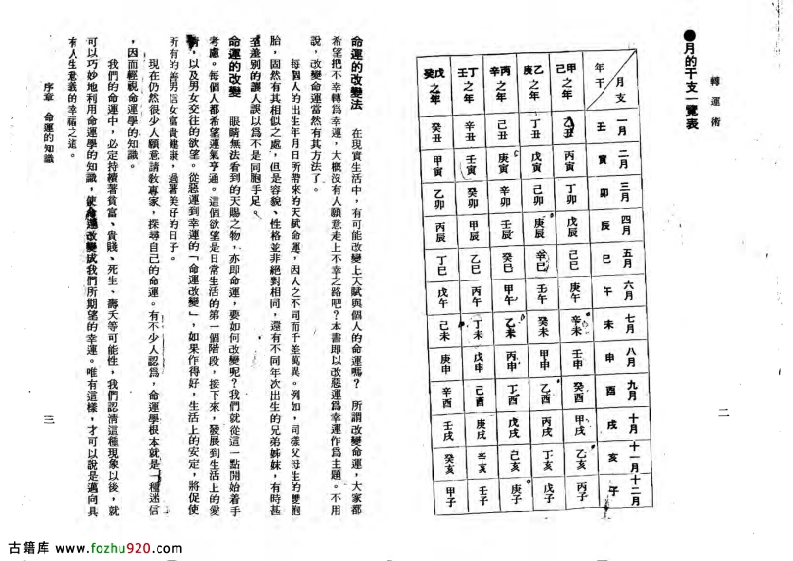 轉運術
二
●月的干支一覽表
月支 年干 甲己之年 乙庚之年 丙辛之年 丁壬之年 戊癸之年
一月 丑 乙丑 丁丑 己丑 辛丑 癸丑
二月 寅 丙寅 戊寅 庚寅 壬寅 甲寅
三月 卯 丁卯 己卯 辛卯 癸卯 乙卯
四月 辰 戊辰 庚辰 壬辰 甲辰 丙辰
五月 巳 己巳 辛巳 癸巳 乙巳 丁巳
六月 午 庚午 壬午 甲午 丙午 戊午
七月 未 辛未 癸未 乙未 丁未 己未
八月 申 壬申 甲申 丙申 戊申 庚申
九月 酉 癸酉 乙酉 丁酉 己酉 辛酉
十月 戌 甲戌 丙戌 戊戌 庚戌 壬戌
十一月 亥 乙亥 丁亥 己亥 辛亥 癸亥
十二月 子 丙子 戊子 庚子 壬子 甲子
命運的改變法　在現實生活中，有可能改變上天賦與個人的命運嗎？所謂改變命運，大家都
希望把不幸轉為幸運，大概沒有人願意走上不幸之路吧？本書即以改惡運為幸運作為主題。不用
說，改變命運當然有其方法了。
每個人的出生年月日所帶來的天賦命運，因人之不同而千差萬異。例如，同樣父母生的雙胞
胎，固然有其相似之處，但是容貌、性格並非絕對相同，還有不同年次出生的兄弟姊妹，有時甚
至差別的讓人誤以為不是同胞手足。
命運的改變　眼睛無法看到的天賜之物，亦即命運，要如何改變呢？我們就從這一點開始着手
考慮。每個人都希望運氣亨通。這個欲望是日常生活的第一個階段，接下來，發展到生活上的愛
情，以及男女交往的欲望。從惡運到幸運的「命運改變」，如果作得好，生活上的安定，將促使
所有的善男信女富貴健康，過著美好的日子。
現在仍然很少人願意請教專家，探尋自己的命運。有不少人認為，命運學根本就是一種迷信
，因而輕視命運學的知識。
我們的命運中，必定持續著貧富、貴賤、死生、壽夭等可能性，我們認清這種現象以後，就
可以巧妙地利用命運學的知識，使命運改變成我們所期望的幸運。唯有這樣，才可以說是邁向具
有人生意義的幸福之道。
序章　命運的知識
三
古籍库 www.fozhu920.com